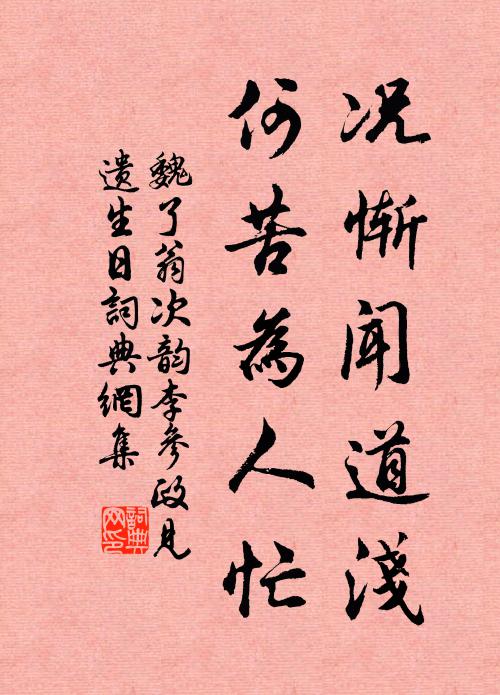 况慚闻道淺
何苦為人忙
魏了翁次韵李參政見
遗生日詞典網集
詞典网印